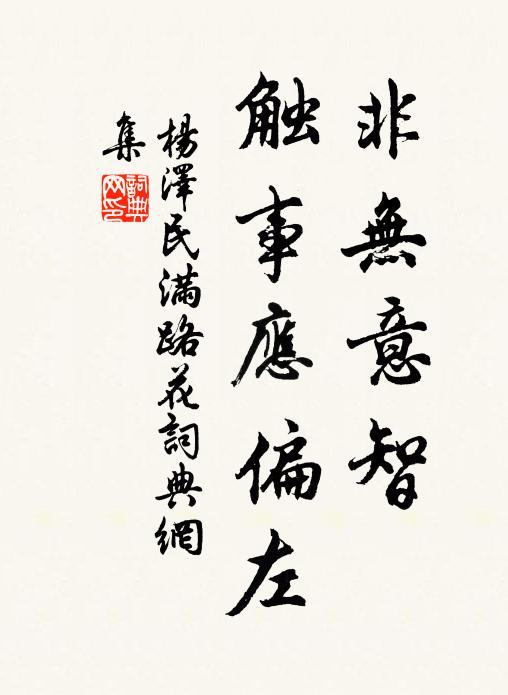 非無意智
触事應偏左
楊澤民滿路花詞典網
集
詞典網印